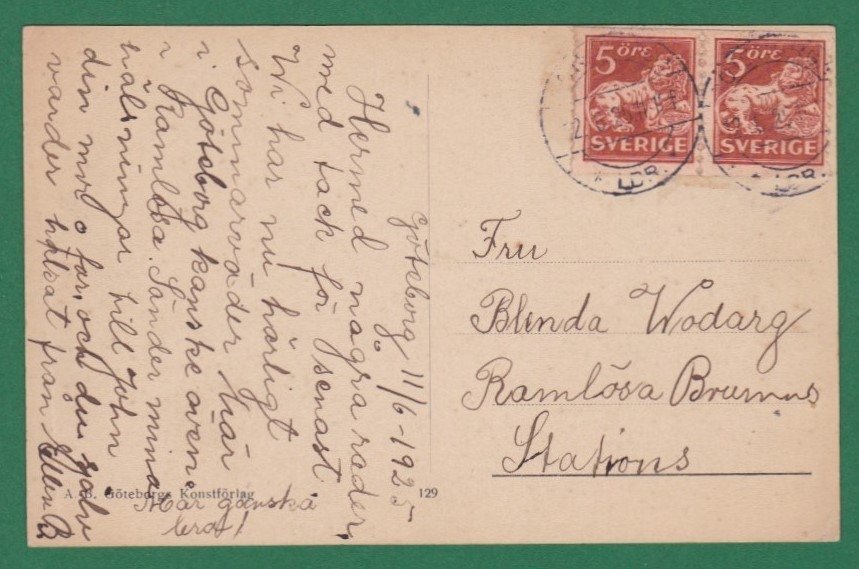 Göteborg 11/6-1925
Hermed några rader
med tack för senast
Wi har nu härligt
sommarväder här
i Göteborg kanske även
i Ramlösa. Sänder mina
hälsningar till John
din mor o far. och du själv
varder hälsat från Ellen B.
Mår ganska
bra!
A. B. Göteborgs Konstförlag
129
5 ÖRE
SVERIGE
5 ÖRE
SVERIGE
LBR.
LBR.
Fru
Blenda Wodarg
Ramlösa Brunns
Stations